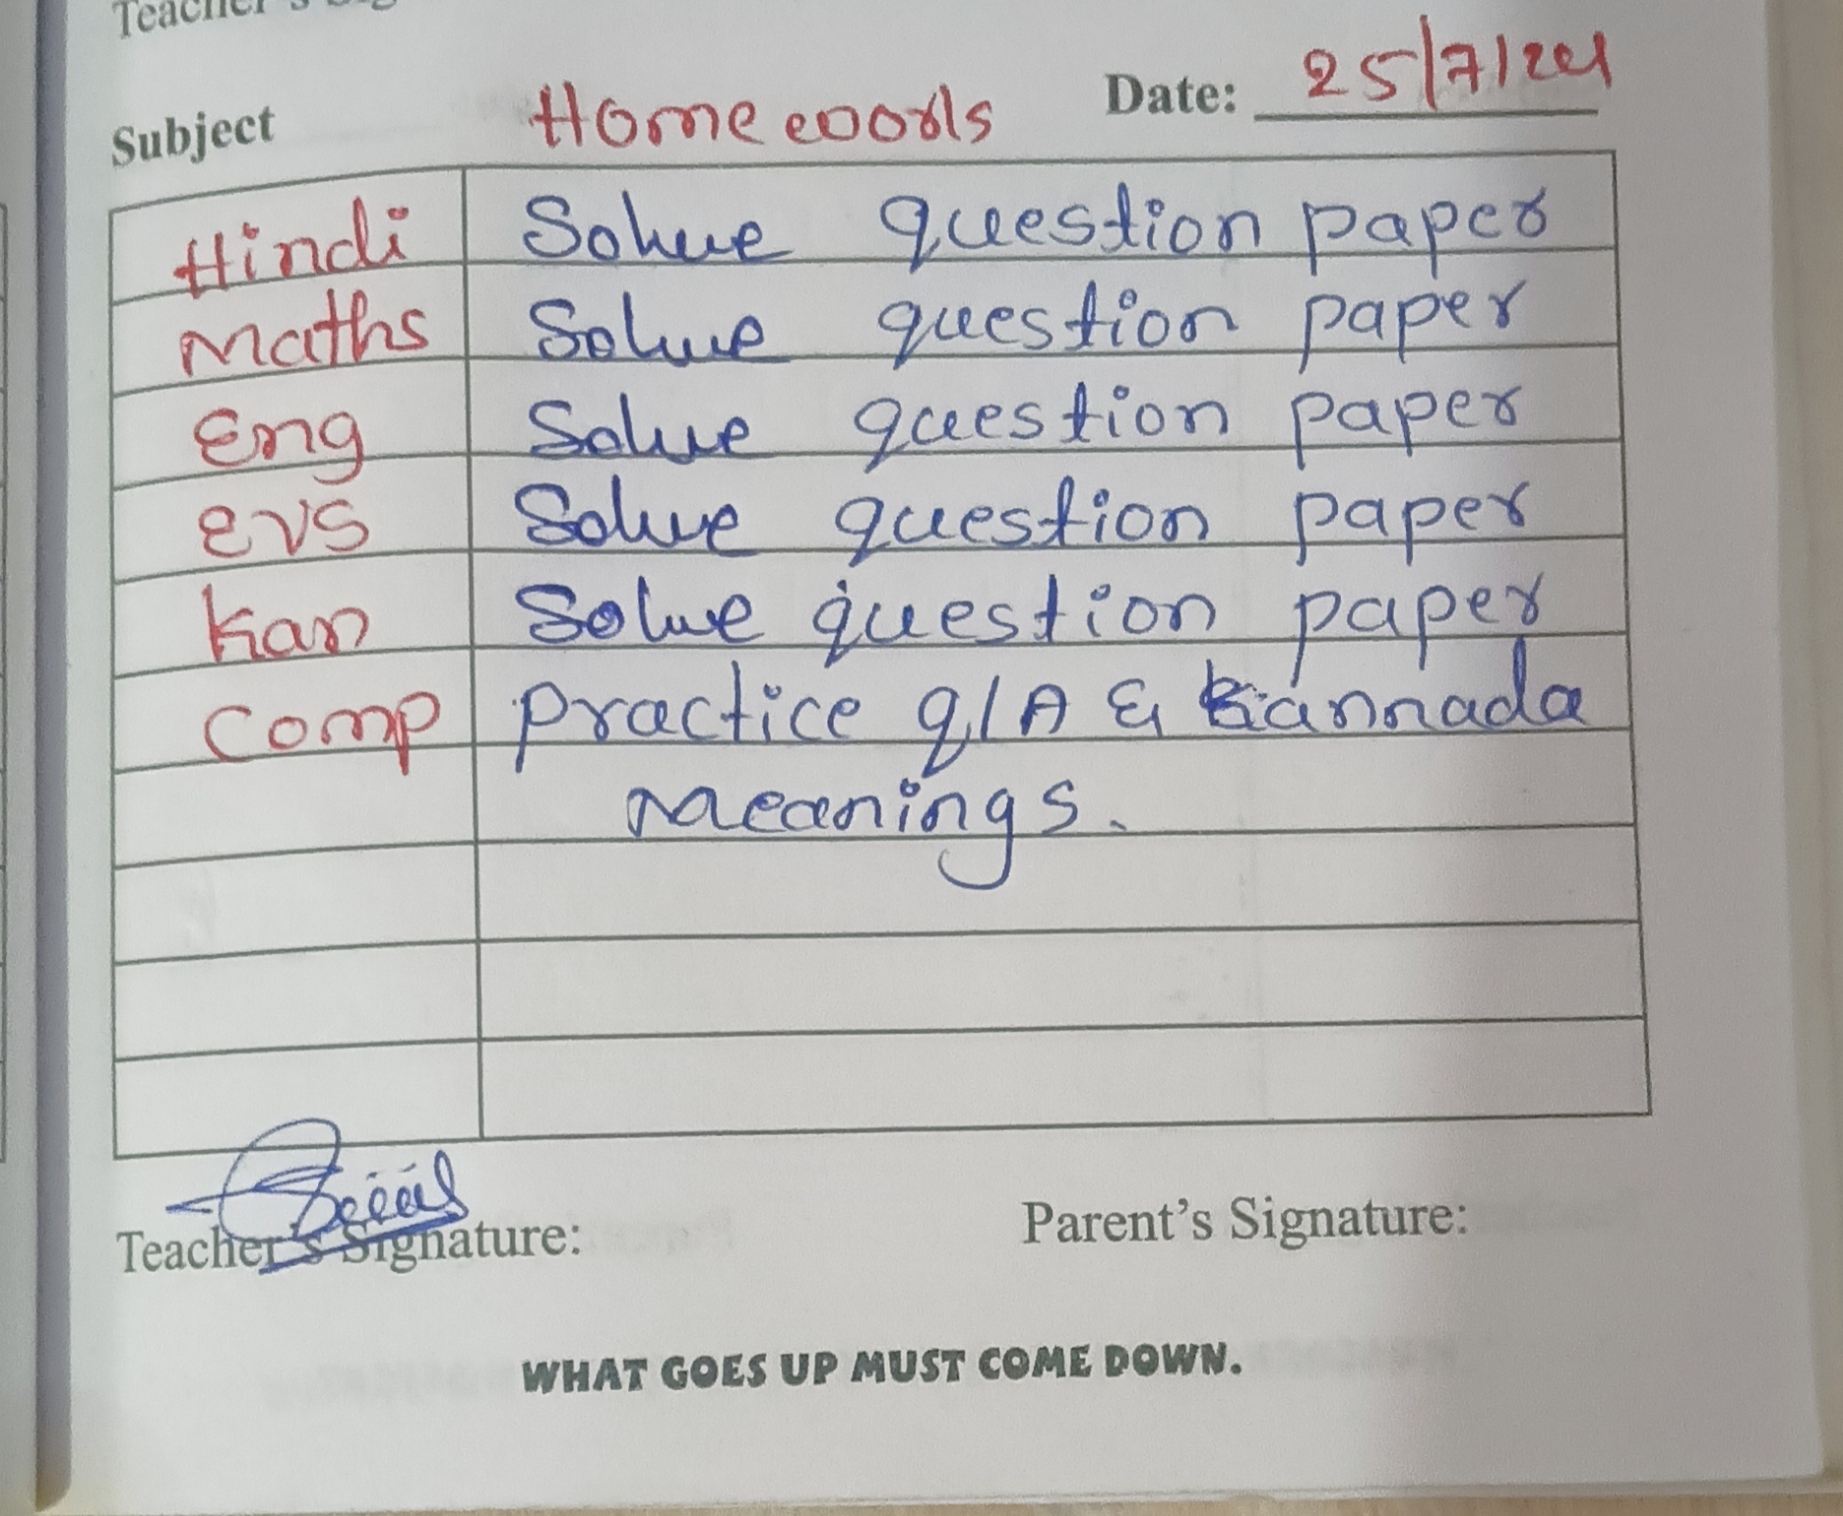 Teacher's Sig
Subject Homework Date: 25/7/24
Hindi Solve question paper
Maths Solve question paper
Eng Solve question paper
EVS Solve question paper
Kan Solve question paper
Comp practice q/A & Kannada
meanings.
Teacher's Signature: Parent's Signature:
WHAT GOES UP MUST COME DOWN.